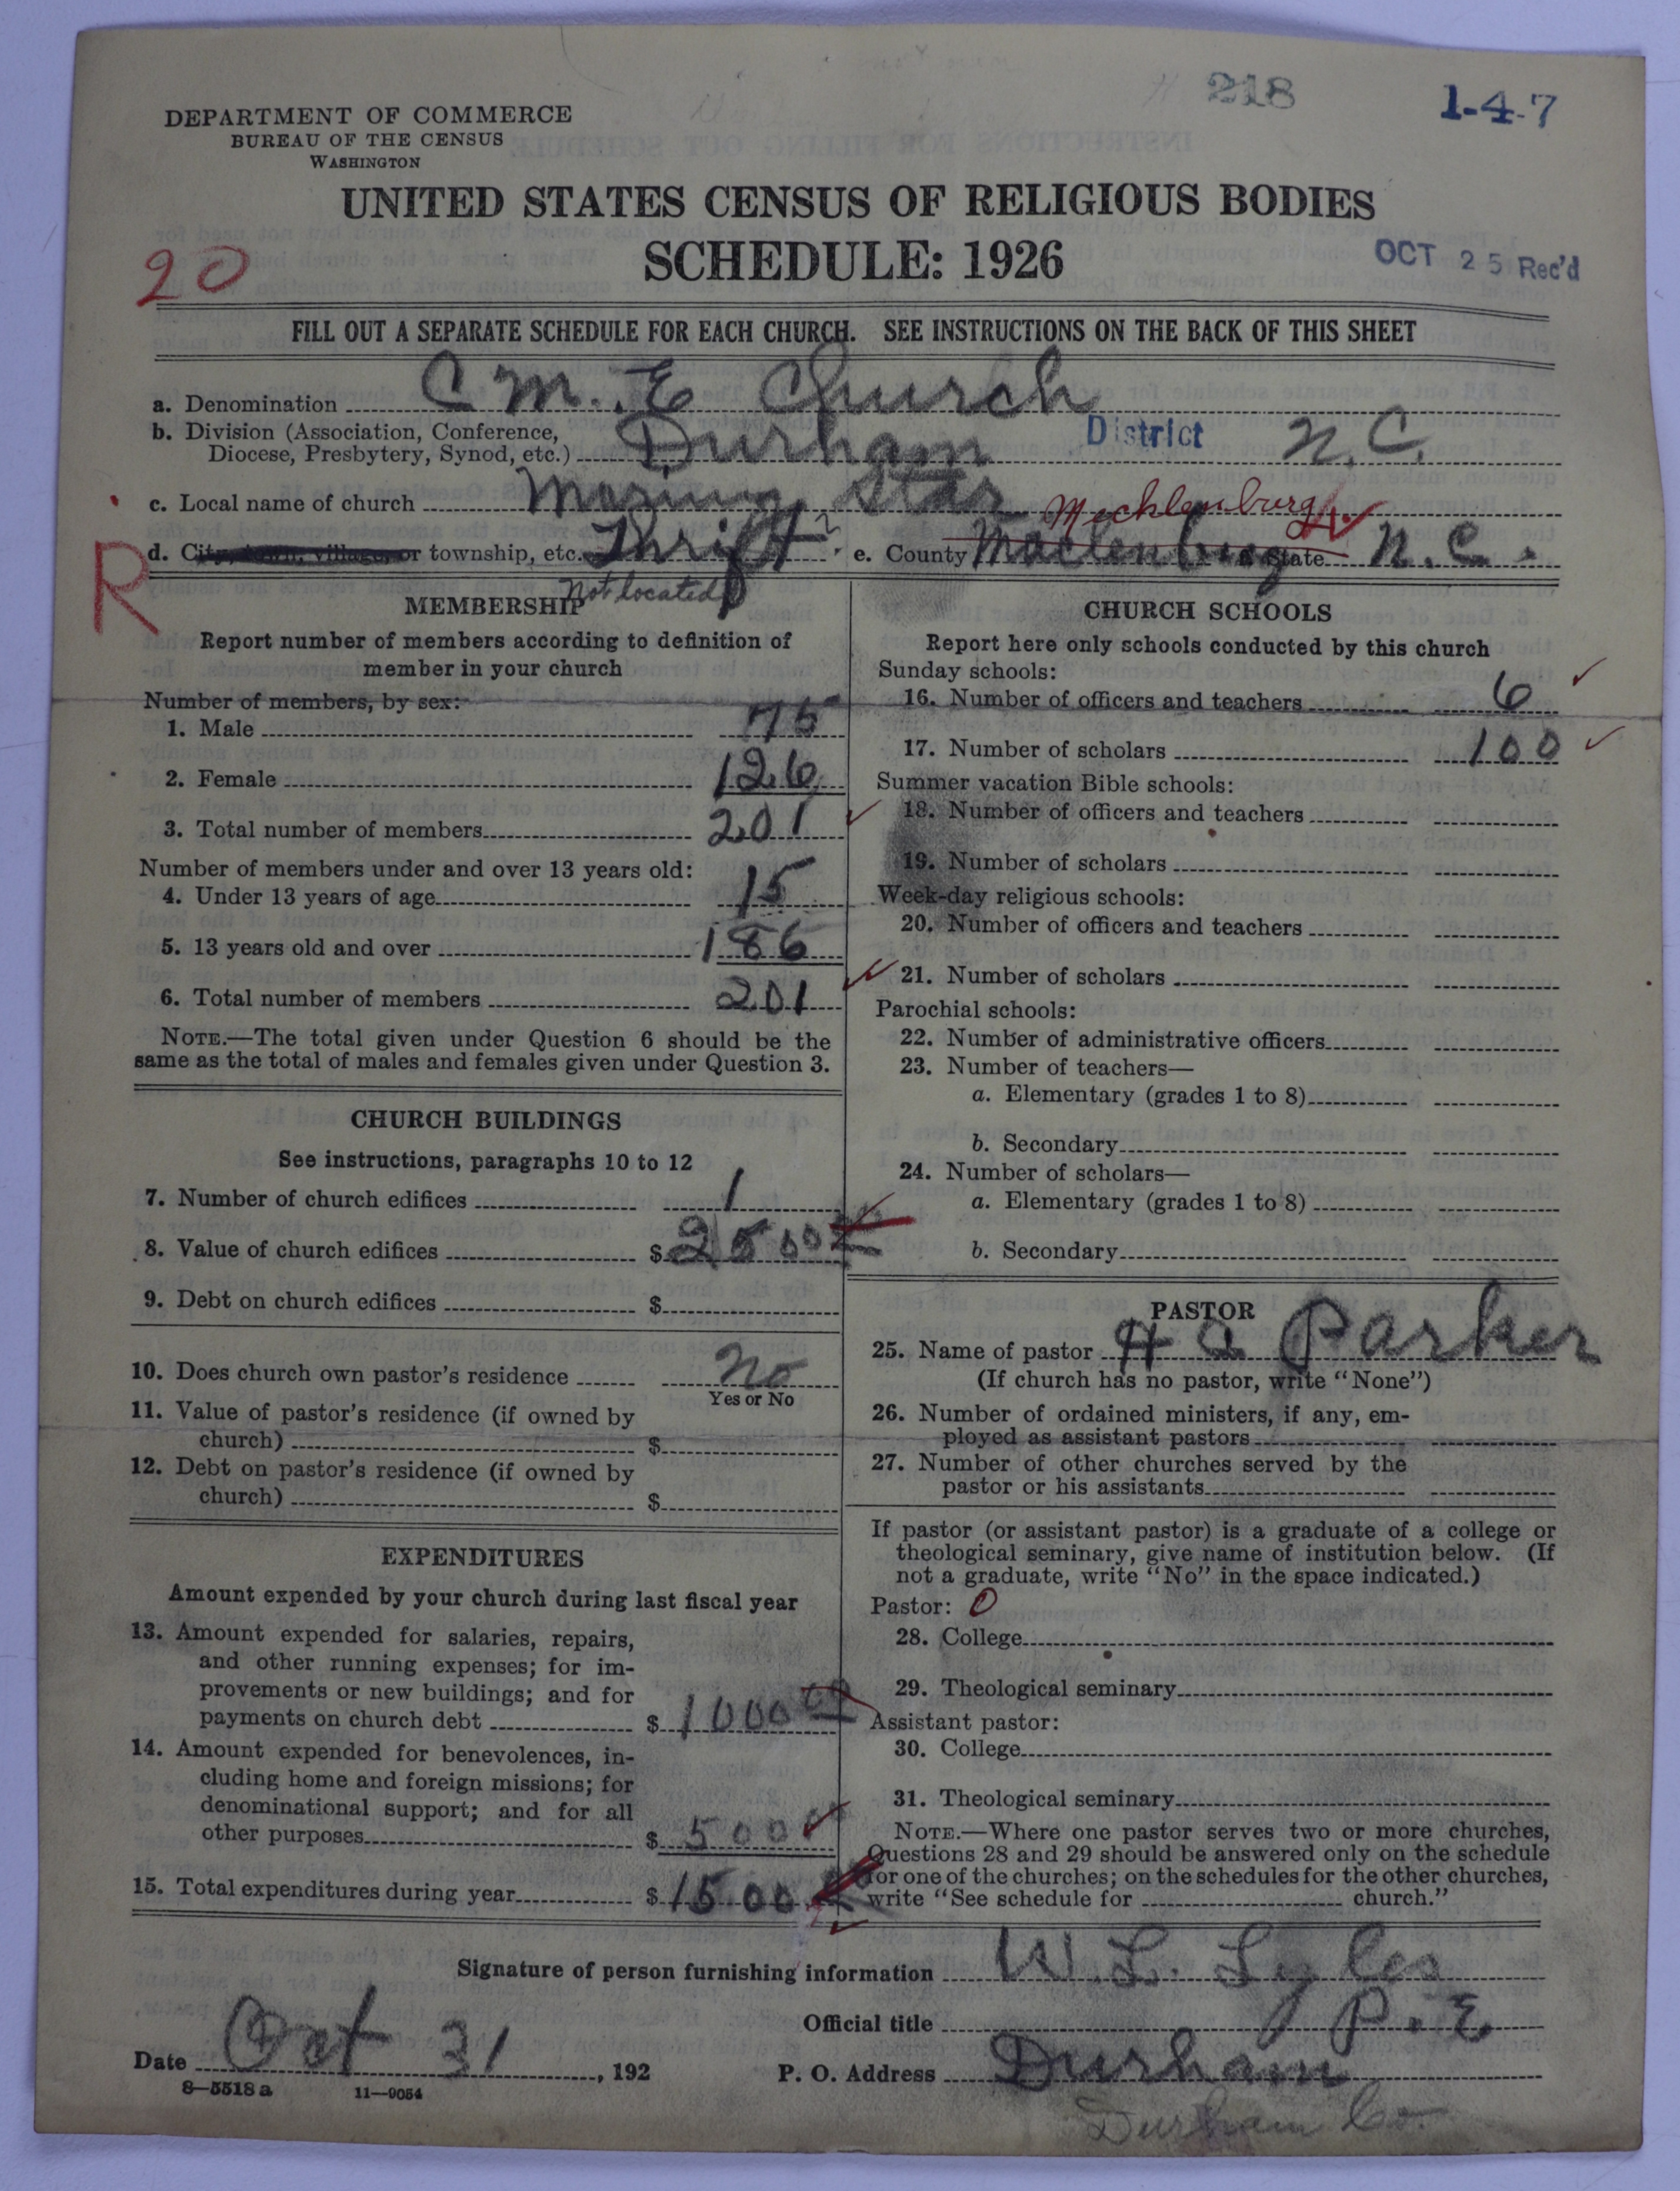 218
1-4-7
DEPARTMENT OF COMMERCE
BUREAU OF THE CENSUS
WASHINGTON
UNITED STATES CENSUS OF RELIGIOUS BODIES
SCHEDULE: 1926
OCT 25 Rec'd
20
FILL OUT A SEPARATE SCHEDULE FOR EACH CHURCH. SEE INSTRUCTIONS ON THE BACK OF THIS SHEET
a. Denomination C M. E Church
b. Division (Association, Conference,
Diocese, Presbytery, Synod, etc.) Durham District N. C.
c. Local name of church Star
Mecklenburg
R
d. City, town, village, or township, etc. Thrift ? e. County Maclenburg State N. C.
Not located
MEMBERSHIP
Report number of members according to definition of
member in your church
Number of members, by sex:
1. Male 75
2. Female 126
3. Total number of members 201
Number of members under and over 13 years old:
4. Under 13 years of age 15
5. 13 years old and over 186
6. Total number of members 201
NOTE.—The total given under Question 6 should be the
same as the total of males and females given under Question 3.
CHURCH BUILDINGS
See instructions, paragraphs 10 to 12
7. Number of church edifices 1
8. Value of church edifices $ 2500
9. Debt on church edifices $
10. Does church own pastor's residence No
Yes or No
11. Value of pastor's residence (if owned by
church) $
12. Debt on pastor's residence (if owned by
church) $
EXPENDITURES
Amount expended by your church during last fiscal year
13. Amount expended for salaries, repairs,
and other running expenses; for im-
provements or new buildings; and for
payments on church debt $ 1000 00
14. Amount expended for benevolences, in-
cluding home and foreign missions; for
denominational support; and for all
other purposes $ 500
15. Total expenditures during year $ 1500
CHURCH SCHOOLS
Report here only schools conducted by this church
Sunday schools:
16. Number of officers and teachers 6
17. Number of scholars 100
Summer vacation Bible schools:
18. Number of officers and teachers
19. Number of scholars
Week-day religious schools:
20. Number of officers and teachers
21. Number of scholars
Parochial schools:
22. Number of administrative officers
23. Number of teachers—
a. Elementary (grades 1 to 8)
b. Secondary
24. Number of scholars—
a. Elementary (grades 1 to 8)
b. Secondary
PASTOR
25. Name of pastor H a Parker
(If church has no pastor, write "None")
26. Number of ordained ministers, if any, em-
ployed as assistant pastors
27. Number of other churches served by the
pastor or his assistants
If pastor (or assistant pastor) is a graduate of a college or
theological seminary, give name of institution below. (If
not a graduate, write "No" in the space indicated.)
Pastor: 0
28. College
29. Theological seminary
Assistant pastor:
30. College
31. Theological seminary
NOTE.—Where one pastor serves two or more churches,
Questions 28 and 29 should be answered only on the schedule
for one of the churches; on the schedules for the other churches,
write "See schedule for church."
Signature of person furnishing information W. L. Lyles
Official title P. E
Date Oct 31, 192
P. O. Address Durham
8—5518 a 11—9054
Durham Co.